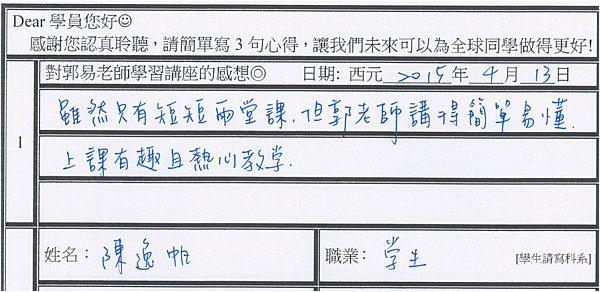 Dear 學員您好☺
感謝您認真聆聽，請簡單寫 3 句心得，讓我們未來可以為全球同學做得更好!
對郭易老師學習講座的感想◎ 日期: 西元 2015 年 4 月 13 日
1
雖然只有短短兩堂課，但郭老師講得簡單易懂.
上課有趣且熱心教学.
姓名： 陳逸帆 職業： 学生 [學生請寫科系]